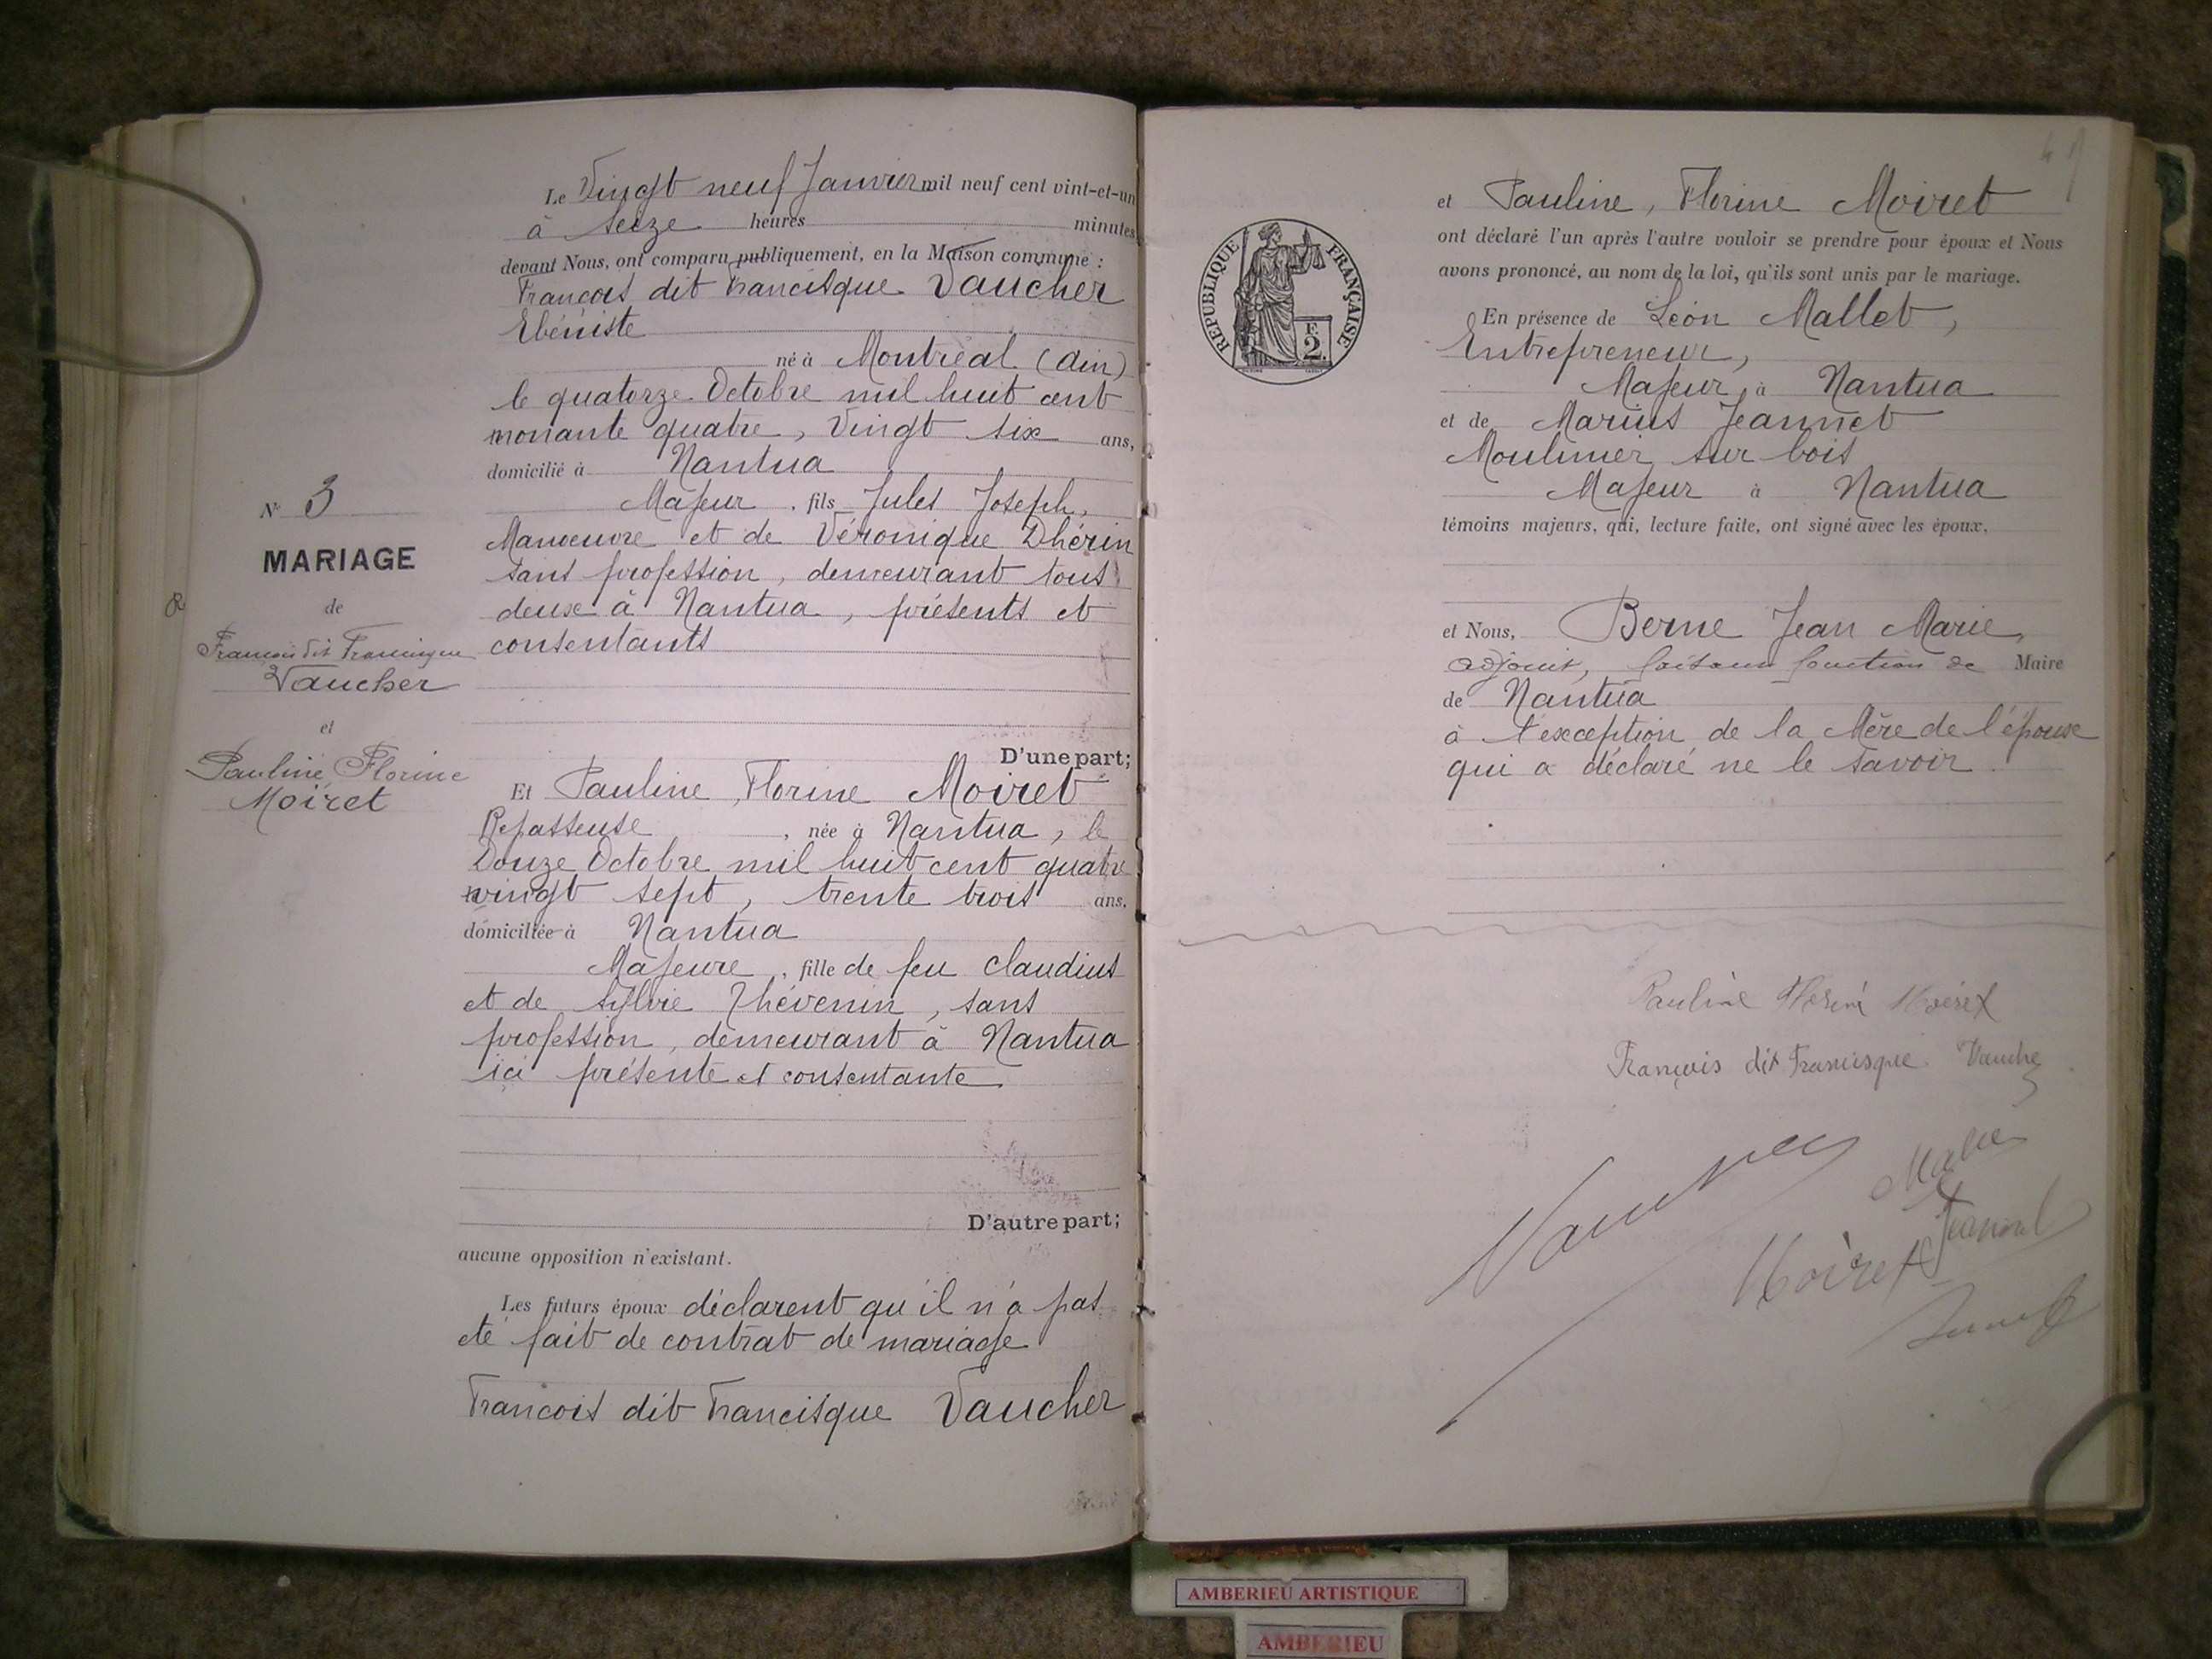 Le Vingt neuf Janvier mil neuf cent vint-et-un
à seize heures minutes
devant Nous, ont comparu publiquement, en la Maison commune :
François dit Francisque Vaucher
Ebéniste
né à Montréal (Ain)
le quatorze Octobre mil huit cent
nonante quatre, Vingt six ans,
domicilié à Nantua
Majeur, fils Jules Joseph,
Manœuvre et de Véronique Dhérin
sans profession, demeurant tous
deux à Nantua, présents et
consentants
D'une part;
N° 3
MARIAGE
de
François dit Francisque
Vaucher
et
Pauline Florine
Moiret
Et Pauline, Florine Moiret
Repasseuse, née à Nantua, le
Douze Octobre mil huit cent quatre
vingt sept, trente trois ans.
domiciliée à Nantua
Majeure, fille de feu Claudius
et de Sylvie Thévenin, sans
profession, demeurant à Nantua
ici présente et consentante
D'autre part;
aucune opposition n'existant.
Les futurs époux déclarent qu'il n'a pas
été fait de contrat de mariage
Francois dit Francisque Vaucher
et Pauline, Florine Moiret
ont déclaré l'un après l'autre vouloir se prendre pour époux et Nous
avons prononcé, au nom de la loi, qu'ils sont unis par le mariage.
RÉPUBLIQUE FRANÇAISE
F.
2.
En présence de Léon Mallet,
Entrepreneur,
Majeur, à Nantua
et de Marius Jeannet
Moulinier sur bois
Majeur à Nantua
témoins majeurs, qui, lecture faite, ont signé avec les époux.
et Nous, Berne Jean Marie,
adjoint, faisant fonction de Maire
de Nantua
à l'exception de la Mère de l'épouse
qui a déclaré ne le savoir.
Pauline Florine Moiret
François dit Francisque Vaucher
Vaucher
Mallet
Jeannet
Moiret
AMBERIEU ARTISTIQUE
AMBERIEU